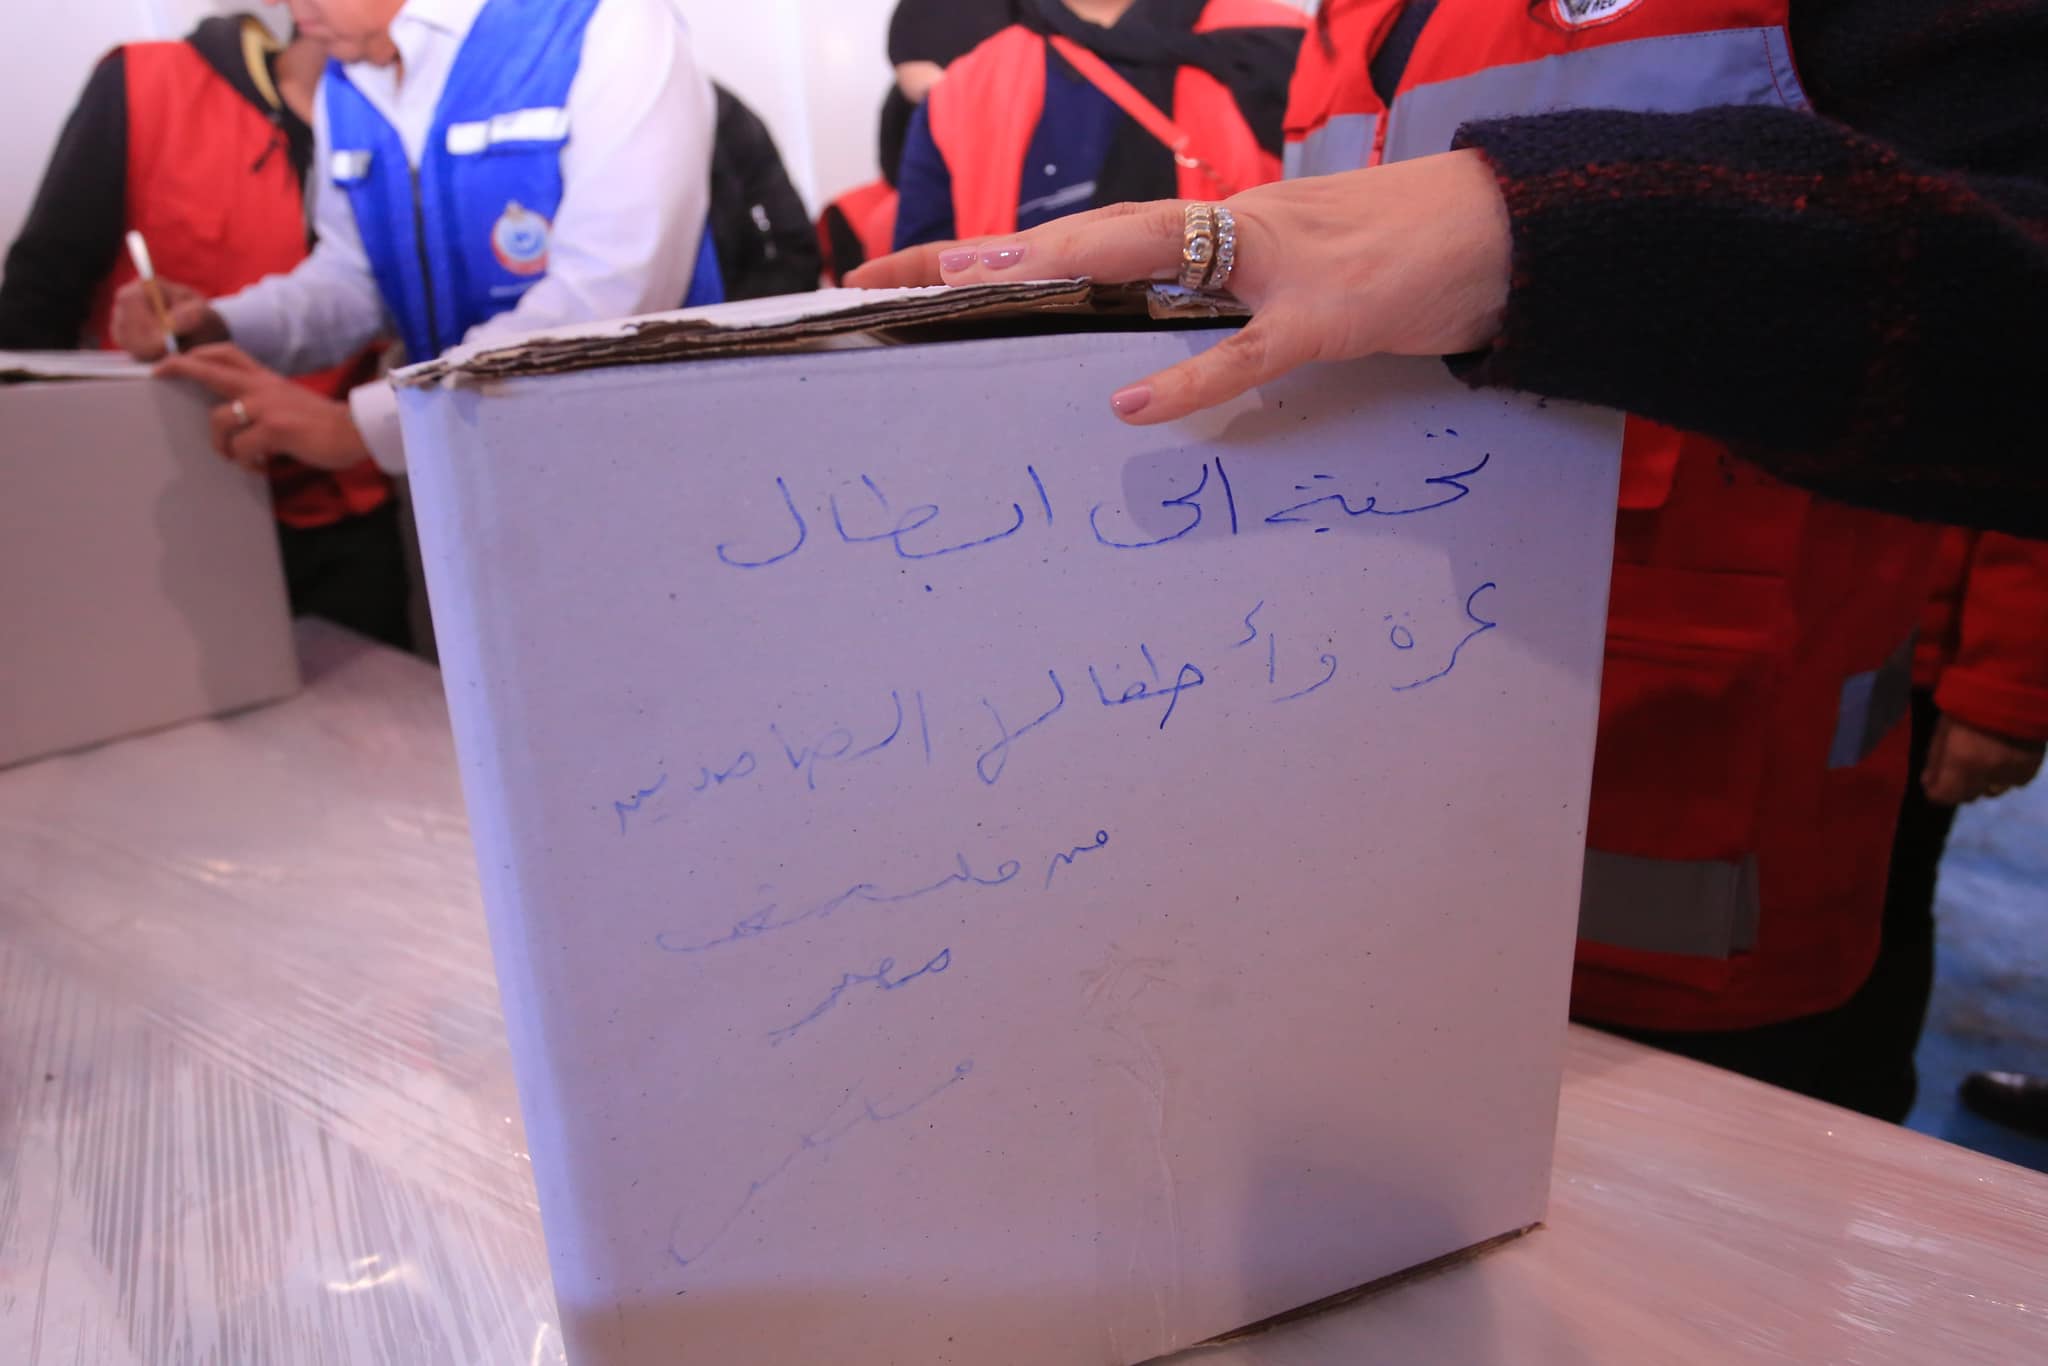 تحية الى ابطال
غزة وأطفالها الصامدين
من قلب شعب
مصر